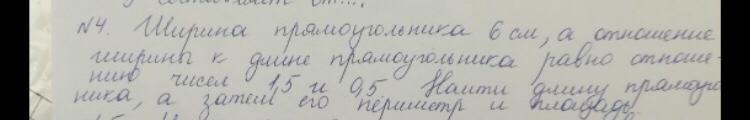 составляет от....
№4. Ширина прямоугольника 6 см, а отношение
ширины к длине прямоугольника равно отноше-
нию чисел 1,5 и 0,5 Найти длину прямоуго
ника, а затем его периметр и площадь